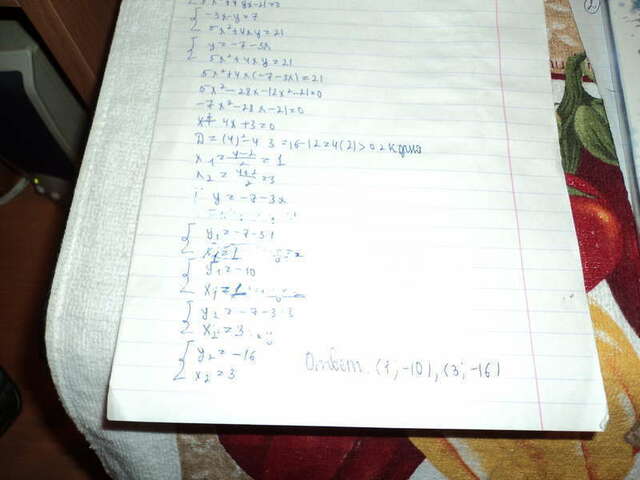 -3x-y=7
5x²+4xy=21
y=-7-3x
5x²+4xy=21
5x²+4x(-7-3x)=21
5x²-28x-12x²-21=0
-7x²-28x-21=0
4x+3=0
x₁=4-2/2=1
x₂=4+2/2=3
y=-7-3x
x₁=1
y₁=-10
x₁=1
y₂=-7-3·3
x₂=3
y₂=-16
x₂=3
Ответ (1;-10),(3;-16)